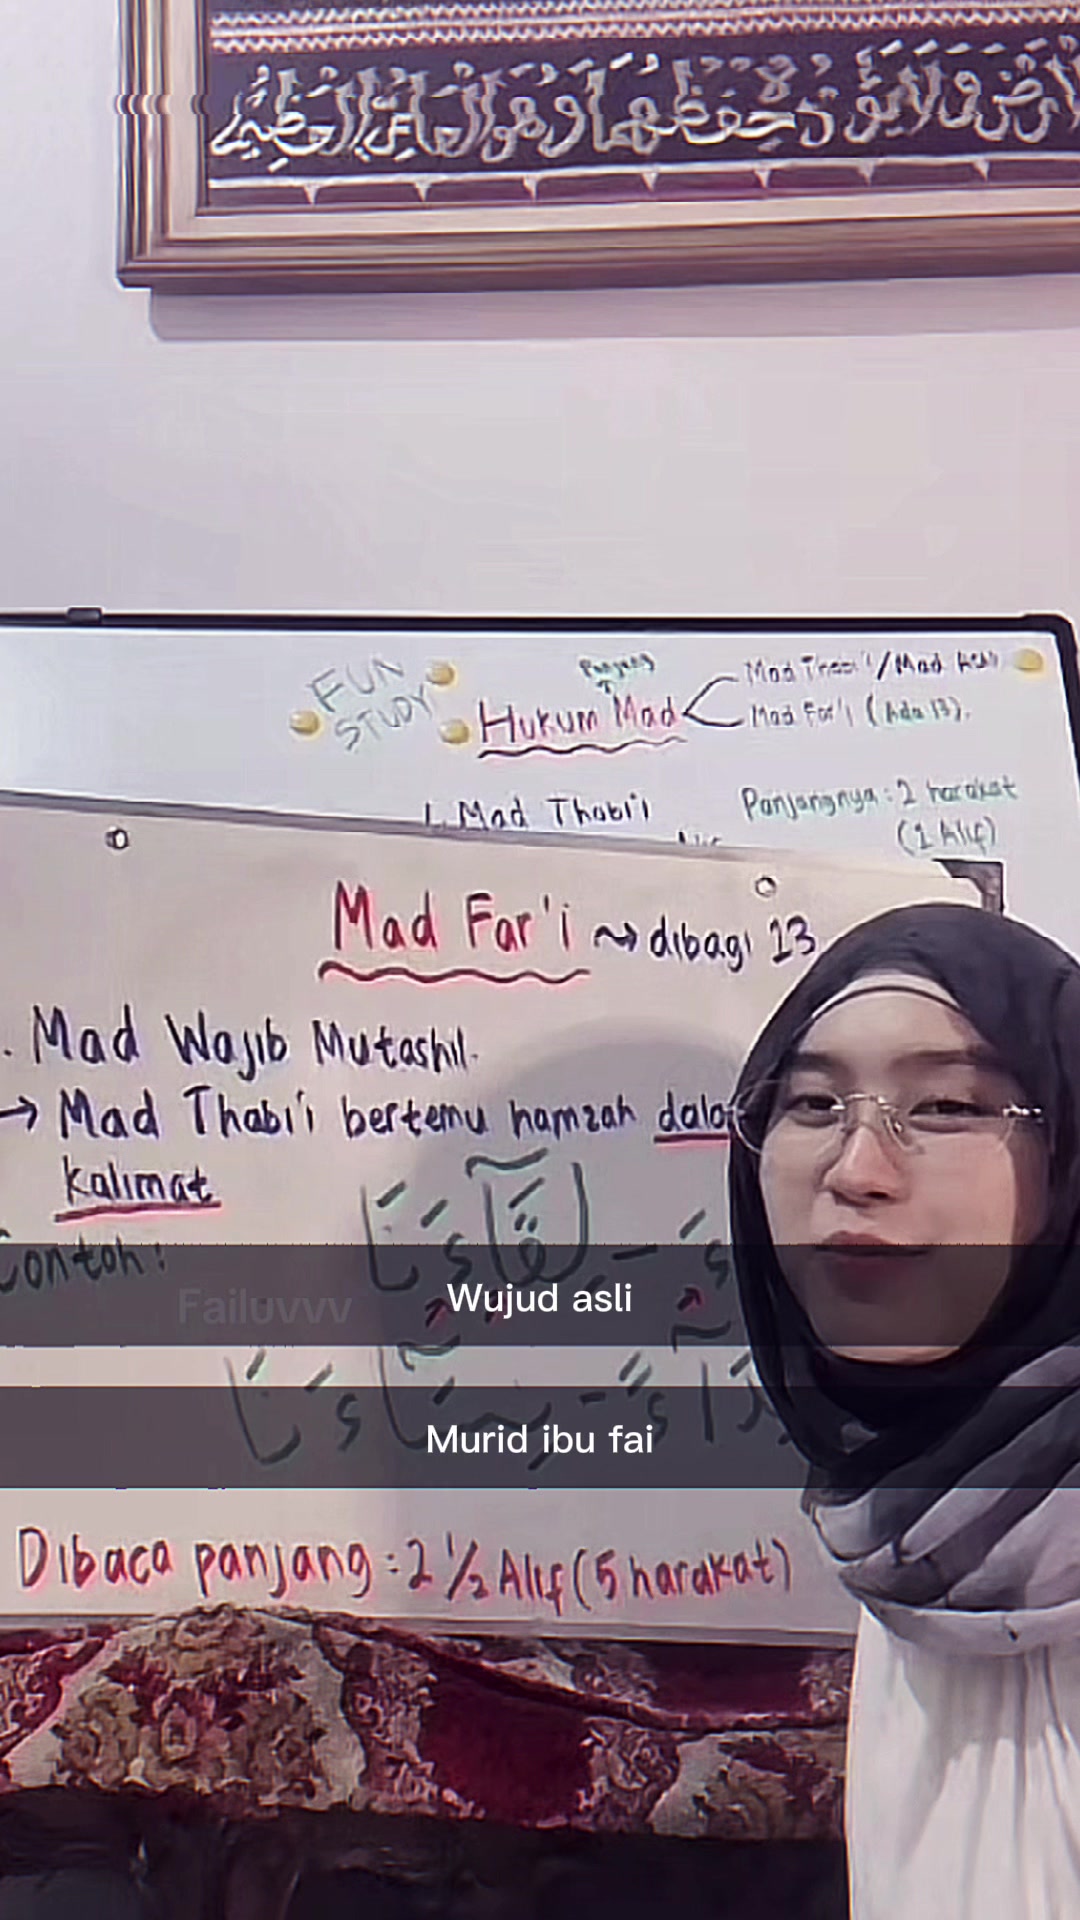 ولا يؤده حفظهما وهو العلي العظيم
FUN
STUDY
Panjang
Hukum Mad
Mad Thabi'i/Mad Asli
Mad Far'i (Ada 13).
1. Mad Thabi'i
Panjangnya : 2 harakat
(1 Alif)
Mad Far'i dibagi 13
. Mad Wajib Mutashil.
→ Mad Thabi'i bertemu hamzah
kalimat
Contoh :
Failuvvv
Wujud asli
Murid ibu fai
Dibaca panjang : 2 ½ Alif (5 harakat)